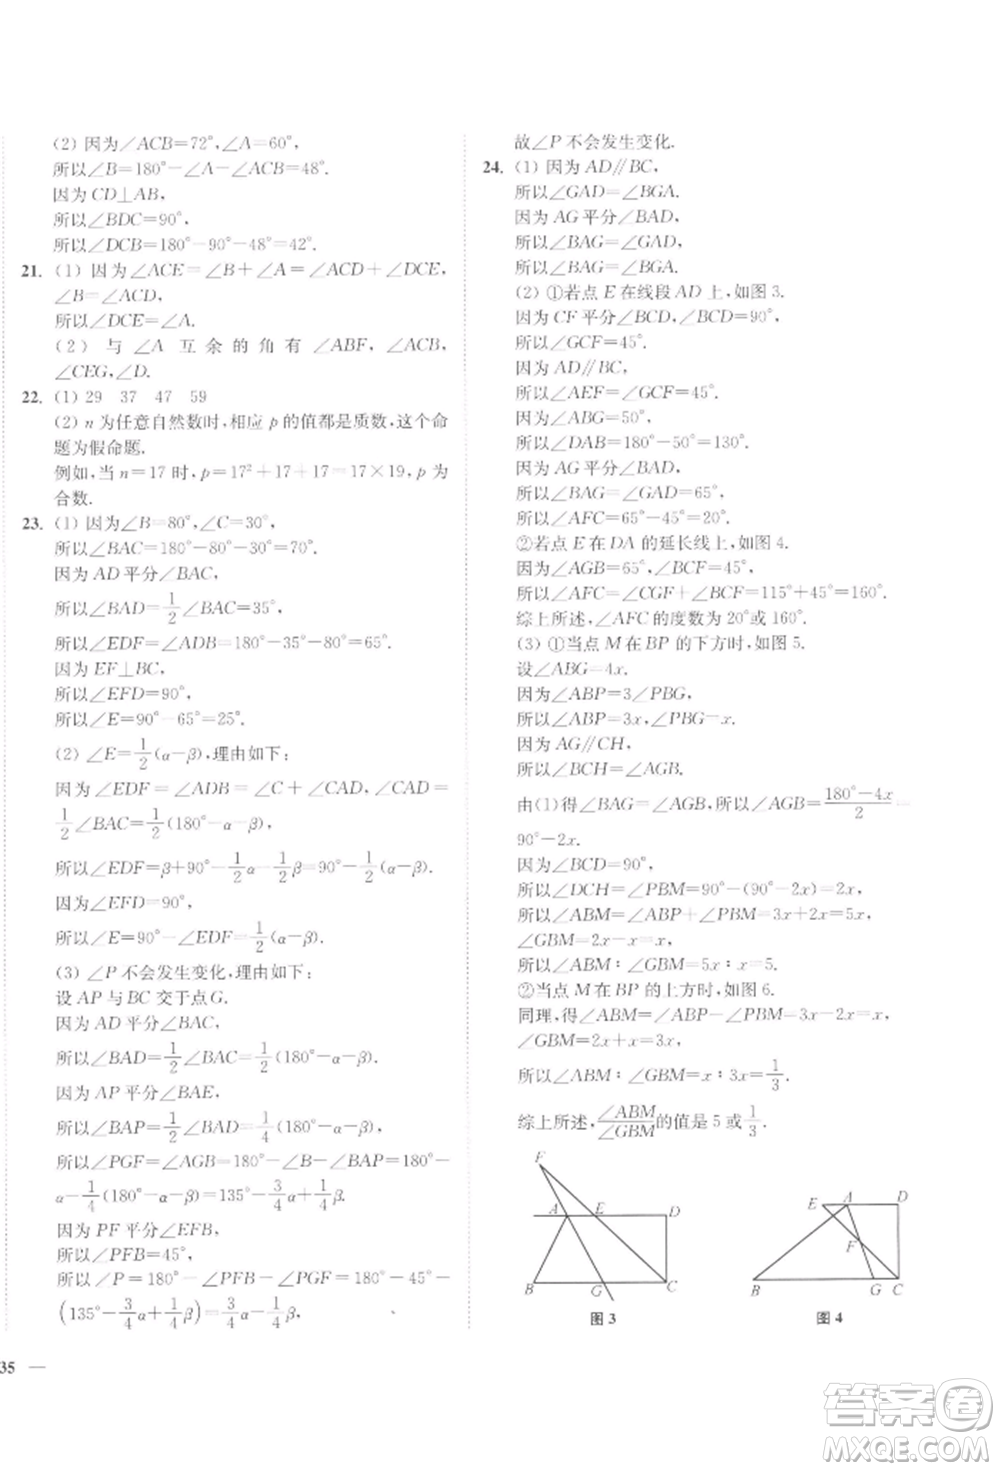 (2) 因为∠ACB=72°,∠A=60°,
所以∠B=180°-∠A-∠ACB=48°.
因为 CD⊥AB,
所以∠BDC=90°,
所以∠DCB=180°-90°-48°=42°.
21. (1) 因为∠ACE=∠B+∠A=∠ACD+∠DCE,
∠B=∠ACD,
所以∠DCE=∠A.
(2) 与∠A 互余的角有∠ABF,∠ACB,
∠CEG,∠D.
22. (1) 29 37 47 59
(2) n 为任意自然数时,相应 p 的值都是质数,这个命
题为假命题.
例如,当 n=17 时,p=17²+17+17=17×19,p 为
合数.
23. (1) 因为∠B=80°,∠C=30°,
所以∠BAC=180°-80°-30°=70°.
因为 AD 平分∠BAC,
所以∠BAD=1/2∠BAC=35°,
所以∠EDF=∠ADB=180°-35°-80°=65°.
因为 EF⊥BC,
所以∠EFD=90°,
所以∠E=90°-65°=25°.
(2) ∠E=1/2(α-β),理由如下:
因为∠EDF=∠ADB=∠C+∠CAD,∠CAD=
1/2∠BAC=1/2(180°-α-β),
所以∠EDF=β+90°-1/2α-1/2β=90°-1/2(α-β).
因为∠EFD=90°,
所以∠E=90°-∠EDF=1/2(α-β).
(3) ∠P 不会发生变化,理由如下:
设 AP 与 BC 交于点G.
因为 AD 平分∠BAC,
所以∠BAD=1/2∠BAC=1/2(180°-α-β).
因为 AP 平分∠BAE,
所以∠BAP=1/2∠BAD=1/4(180°-α-β),
所以∠PGF=∠AGB=180°-∠B-∠BAP=180°-
α-1/4(180°-α-β)=135°-3/4α+1/4β.
因为 PF 平分∠EFB,
所以∠PFB=45°,
所以∠P=180°-∠PFB-∠PGF=180°-45°-
(135°-3/4α+1/4β)=3/4α-1/4β,
故∠P 不会发生变化.
24. (1) 因为 AD∥BC,
所以∠GAD=∠BGA.
因为 AG 平分∠BAD,
所以∠BAG=∠GAD,
所以∠BAG=∠BGA.
(2) ①若点 E 在线段 AD 上,如图 3.
因为 CF 平分∠BCD,∠BCD=90°,
所以∠GCF=45°.
因为 AD∥BC,
所以∠AEF=∠GCF=45°.
因为∠ABG=50°,
所以∠DAB=180°-50°=130°.
因为 AG 平分∠BAD,
所以∠BAG=∠GAD=65°,
所以∠AFC=65°-45°=20°.
②若点 E 在 DA 的延长线上,如图 4.
因为∠AGB=65°,∠BCF=45°,
所以∠AFC=∠CGF+∠BCF=115°+45°=160°.
综上所述,∠AFC 的度数为 20°或 160°.
(3) ①当点 M 在 BP 的下方时,如图 5.
设∠ABG=4x.
因为∠ABP=3∠PBG,
所以∠ABP=3x,∠PBG=x.
因为 AG∥CH,
所以∠BCH=∠AGB.
由(1)得∠BAG=∠AGB,所以∠AGB=(180°-4x)/2=
90°-2x.
因为∠BCD=90°,
所以∠DCH=∠PBM=90°-(90°-2x)=2x,
所以∠ABM=∠ABP+∠PBM=3x+2x=5x,
∠GBM=2x-x=x,
所以∠ABM∶∠GBM=5x∶x=5.
②当点 M 在 BP 的上方时,如图 6.
同理,得∠ABM=∠ABP-∠PBM=3x-2x=x,
∠GBM=2x+x=3x,
所以∠ABM∶∠GBM=x∶3x=1/3.
综上所述,∠ABM/∠GBM的值是 5 或1/3.
F
A E D
B G C
图 3
E A D
F
B G C
图 4
35 —
答案卷
MXQE.COM